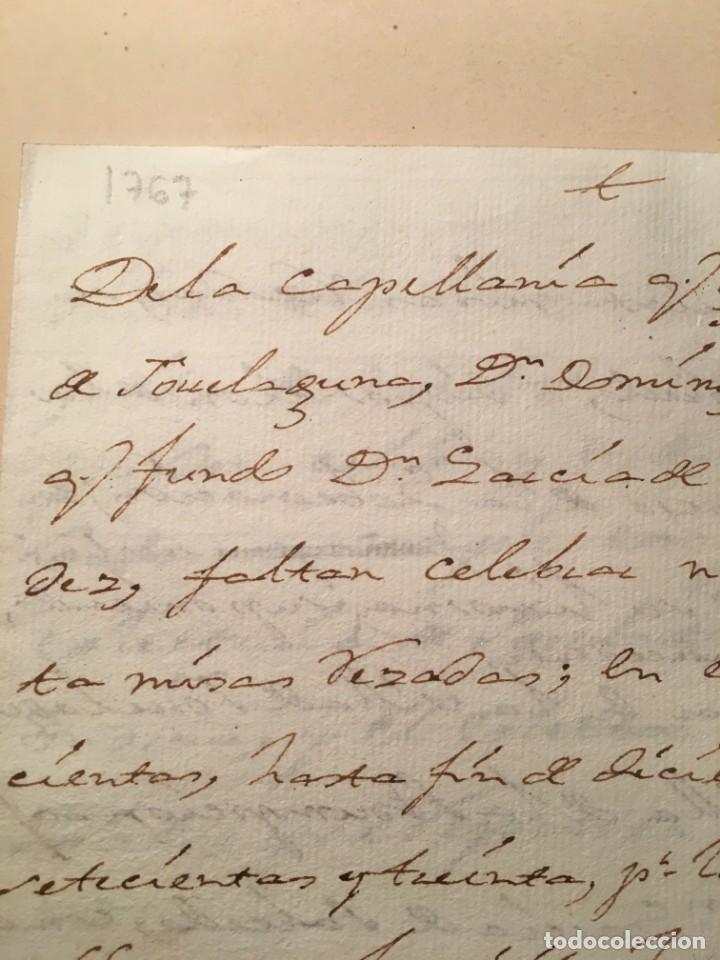 1767
De la capellanía q.
de Torrelaguna, Dn. Domín
q. fundó Dn. García de
dez, faltan celebrar n
ta misas rezadas; en
cientas, hasta fin de dici
seticientas y treinta, pr.
todocoleccion
todocoleccion.net